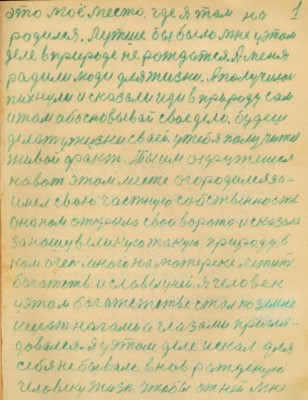 это моё место, где я там на 1
родился. Лутше бы было мне у этом
деле в природе не рождатся. А меня
радили люди для жизни. Я получил
пихнули и сказали иди в природу сам
и там абосновывай своё дело. будеш
делат у жизни своей. у тебя получится
живой факт. Ты им окружешся
на вот этом месте огородился за-
имел свою частную собственность
она нам открыла свои ворота и сказала
за нашу великую такую природу в
ком очен много на матереке летит
богатств. и славы у ней. я человек
у этом багатстстве стал по земле
шагат ногами а глазами пригля-
довался. я у этом деле искал для
себя небывалы вновь рожденую
человеку жизн. чтобы от ней мне